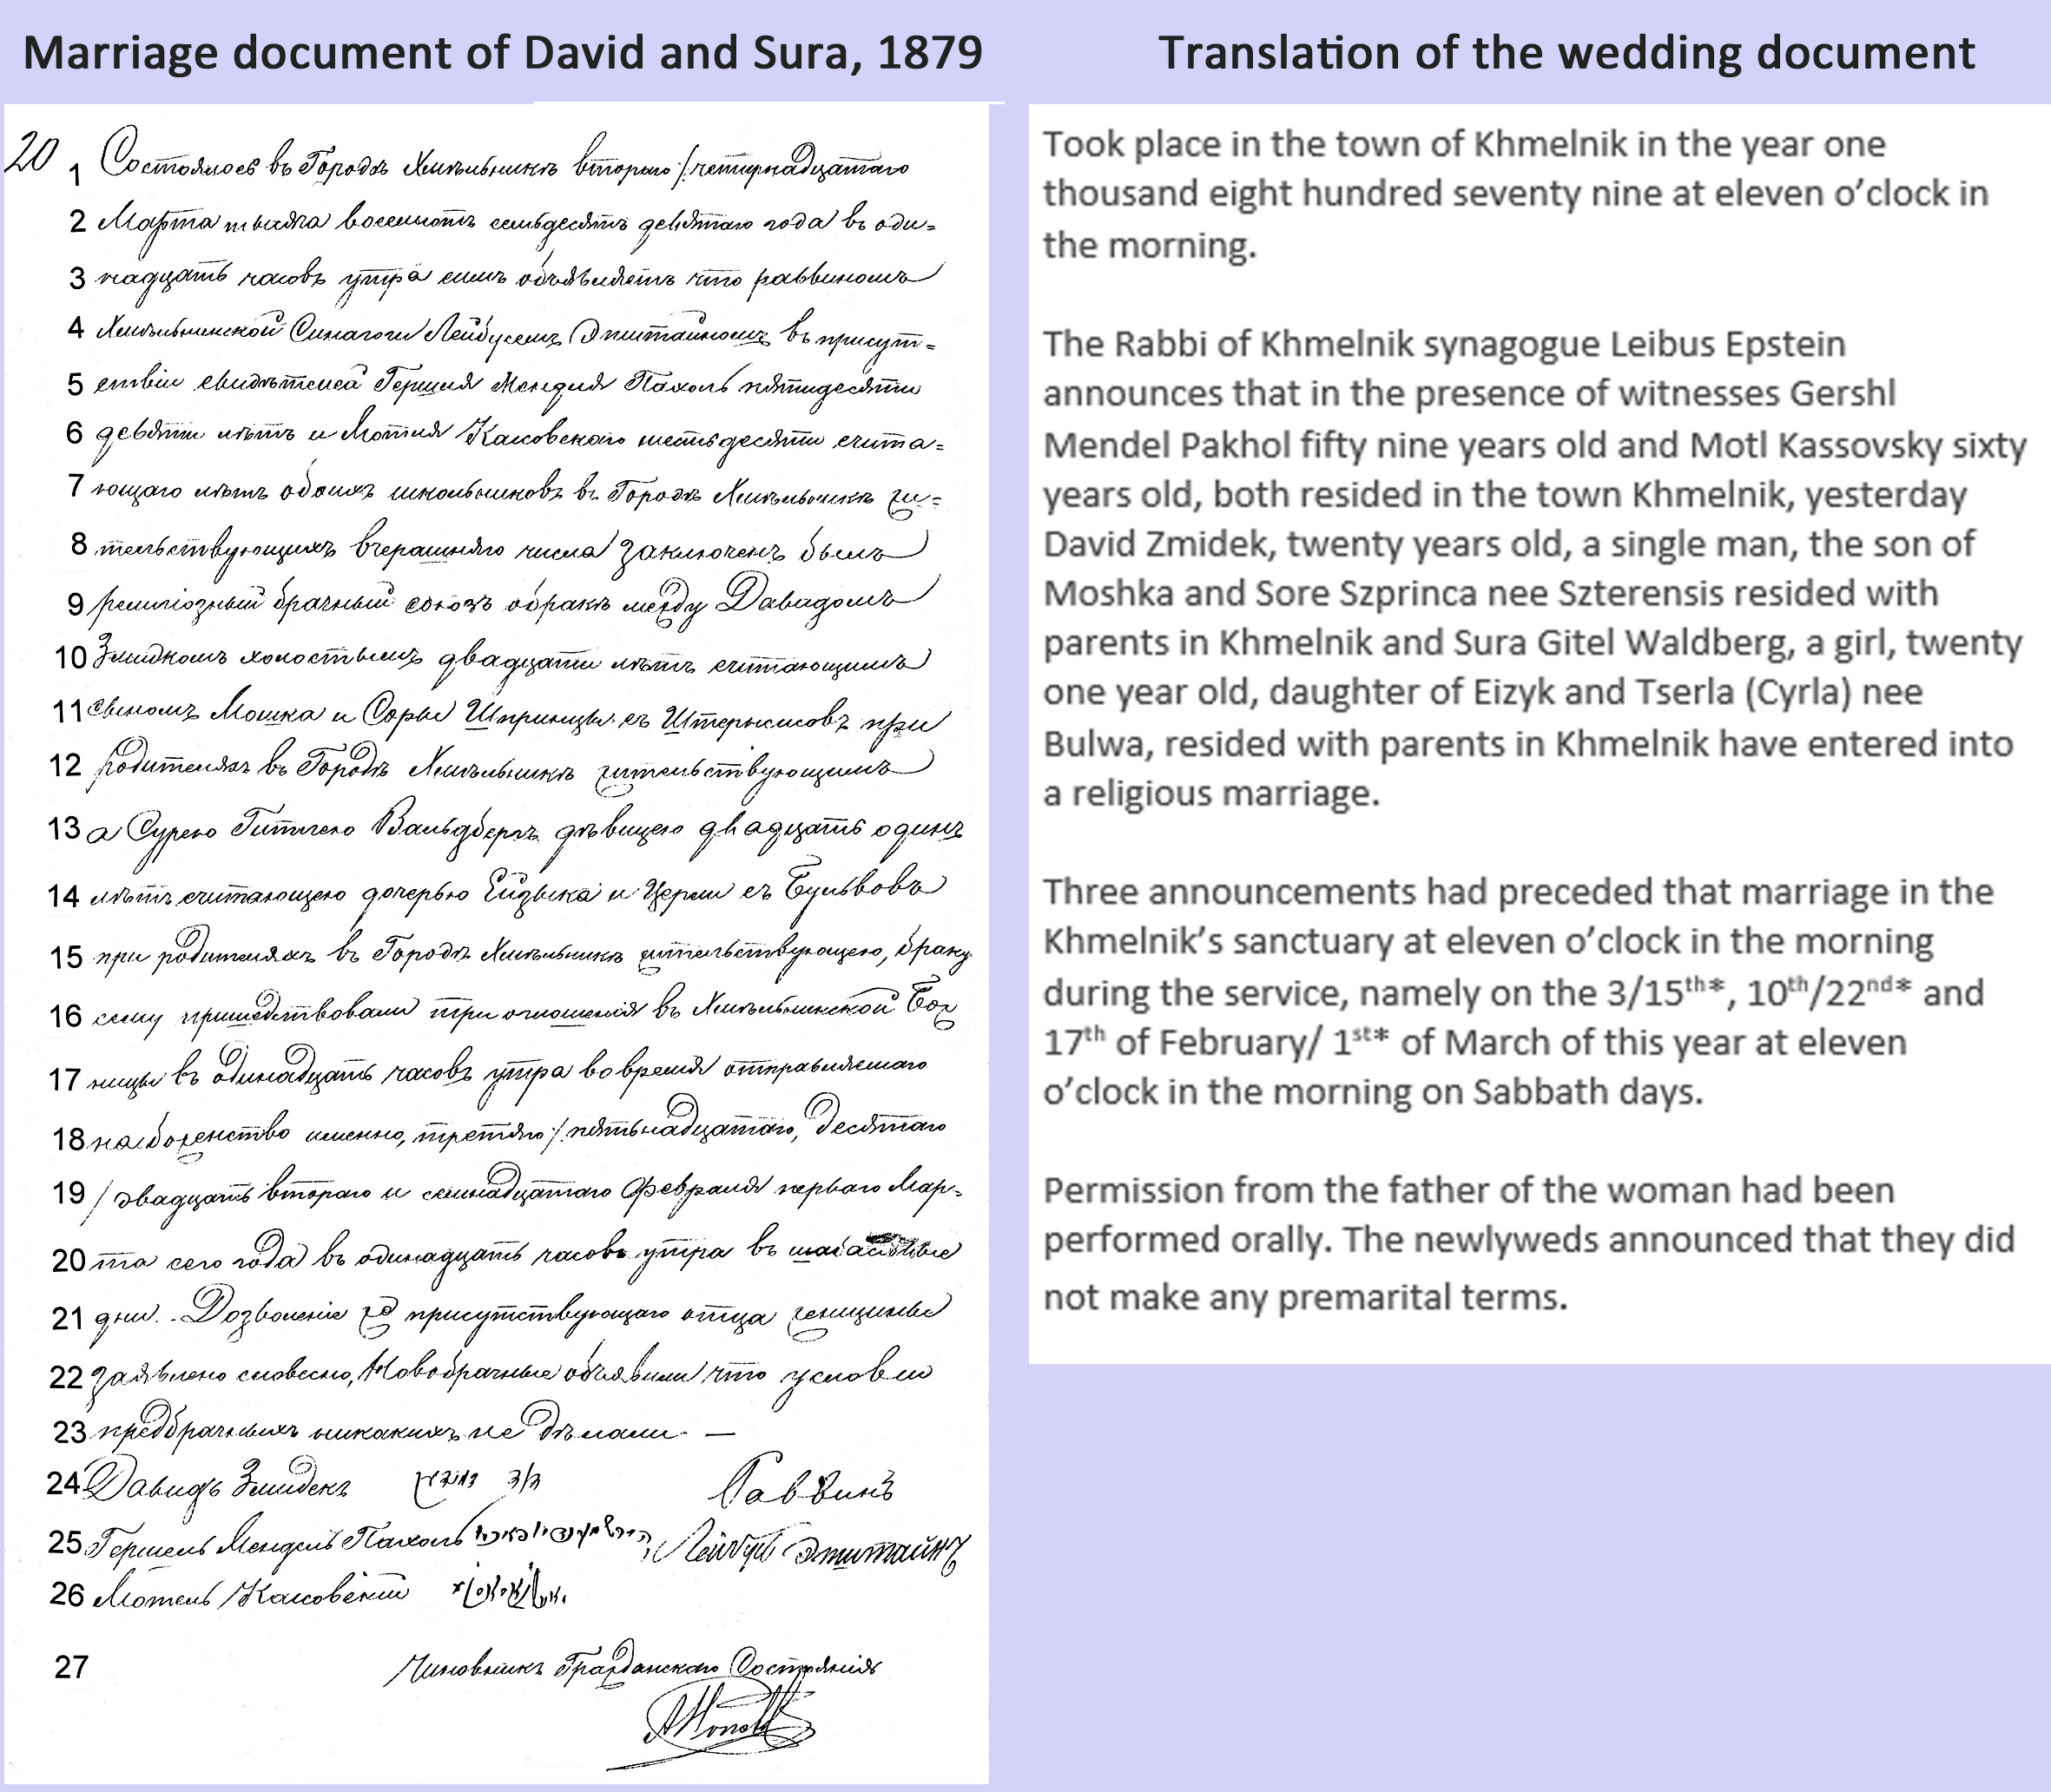 Marriage document of David and Sura, 1879
20
1 Состоялось въ Городѣ Хмѣльникѣ втораго /:четырнадцатаго
2 Марта тысяча восемьсотъ семьдесятъ девятаго года въ оди=
3 надцать часовъ утра симъ объявляетъ что раввиномъ
4 Хмѣльникской Синагоги Лейбусемъ Эпштайномъ въ присут=
5 ствіи свидѣтелей Гершля Мендля Пахоль пятидесяти
6 девяти лѣтъ и Мотля Касовскаго шестьдесяти счита=
7 ющаго лѣтъ обоихъ школьниковъ въ Городѣ Хмѣльникѣ жи=
8 тельствующихъ вчерашняго числа заключенъ былъ
9 религіозный брачный союзъ обракѣ между Давидомъ
10 Змидкомъ холостымъ двадцати лѣтъ считающимъ
11 сыномъ Мошка и Соры Шпринцы съ Штерысисовъ при
12 родителяхъ въ Городѣ Хмѣльникѣ жительствующимъ
13 а Сурею Гитлею Вальдбергъ дѣвицею двадцать одинъ
14 лѣтъ считающею дочерью Ейзыка и Церли съ Бульвовъ
15 при родителяхъ въ Городѣ Хмѣльникѣ жительствующею, браку
16 сему пришедствовали три оглошенія въ Хмѣльникской Бож
17 ницы въ одинадцать часовъ утра вовремя отправляемаго
18 набоженство именно, третяго /:пятьнадцатаго, десятаго
19 / двадцать втораго и семнадцатаго Февраля перваго Мар=
20 та сего года въ одинадцать часовъ утра въ
21 дни. Дозволеніе присутствующаго отца женщины
22 заявлено словесно, Новобрачные объявили что условій
23 предбрачныхъ никакихъ не дѣлали. —
24 Давидъ Змидекъ Раввинъ
25 Гершель Мендель Пахоль Лейбусъ Эпштайнъ
26 Мотель Касовскій
27 Чиновникъ Гражданскаго Состоянія
Translation of the wedding document
Took place in the town of Khmelnik in the year one
thousand eight hundred seventy nine at eleven o’clock in
the morning.
The Rabbi of Khmelnik synagogue Leibus Epstein
announces that in the presence of witnesses Gershl
Mendel Pakhol fifty nine years old and Motl Kassovsky sixty
years old, both resided in the town Khmelnik, yesterday
David Zmidek, twenty years old, a single man, the son of
Moshka and Sore Szprinca nee Szterensis resided with
parents in Khmelnik and Sura Gitel Waldberg, a girl, twenty
one year old, daughter of Eizyk and Tserla (Cyrla) nee
Bulwa, resided with parents in Khmelnik have entered into
a religious marriage.
Three announcements had preceded that marriage in the
Khmelnik’s sanctuary at eleven o’clock in the morning
during the service, namely on the 3/15th*, 10th/22nd* and
17th of February/ 1st* of March of this year at eleven
o’clock in the morning on Sabbath days.
Permission from the father of the woman had been
performed orally. The newlyweds announced that they did
not make any premarital terms.